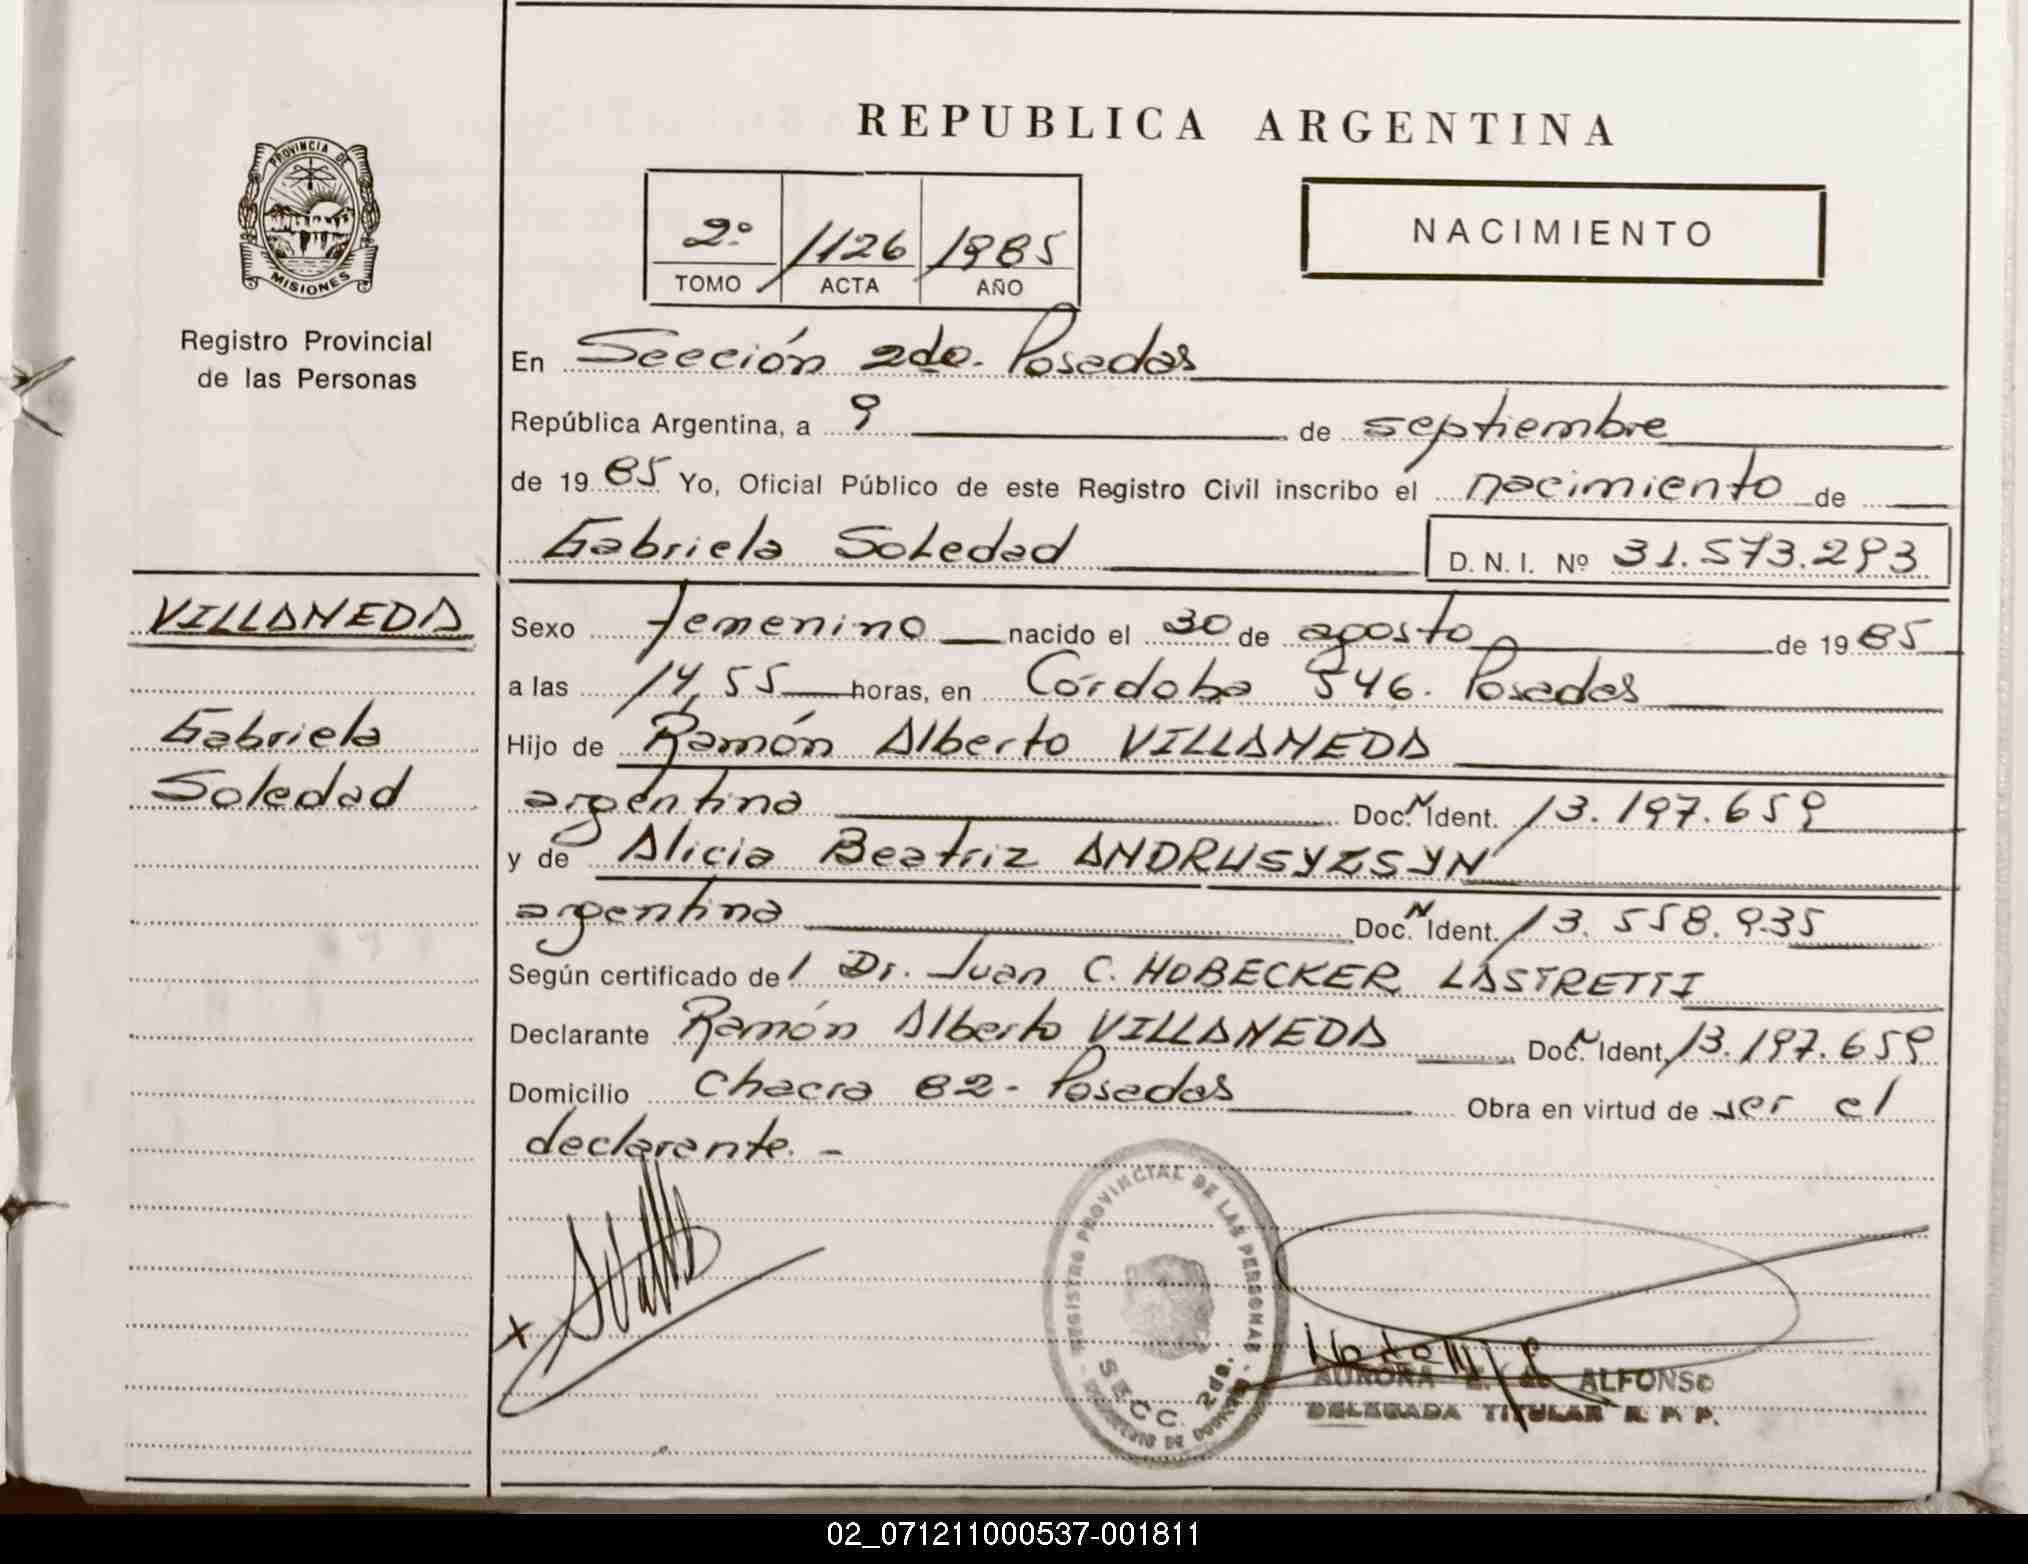 REPUBLICA ARGENTINA
PROVINCIA DE
MISIONES
Registro Provincial
de las Personas
2º 1126 1985
TOMO ACTA AÑO
NACIMIENTO
En Sección 2da. Posadas
República Argentina, a 9 de septiembre
de 1985 Yo, Oficial Público de este Registro Civil inscribo el nacimiento de
Gabriela Soledad D. N. I. Nº 31.573.293
VILLANEDA
Gabriela
Soledad
Sexo femenino nacido el 30 de agosto de 1985
a las 14,55 horas, en Córdoba 546. Posadas
Hijo de Ramón Alberto VILLANEDA
argentina Doc. N Ident. 13.197.659
y de Alicia Beatriz ANDRUSYZSYN
argentina Doc. N Ident. 13.558.935
Según certificado de l Dr. Juan C. HOBECKER LASTRETTI
Declarante Ramón Alberto VILLANEDA Doc. N Ident. 13.197.659
Domicilio Chacra 82- Posadas Obra en virtud de ser el
declarante. -
REGISTRO PROVINCIAL DE LAS PERSONAS
SECC. 2da.
X
AURORA E. de ALFONSO
DELEGADA TITULAR R. P. P.
02_071211000537-001811